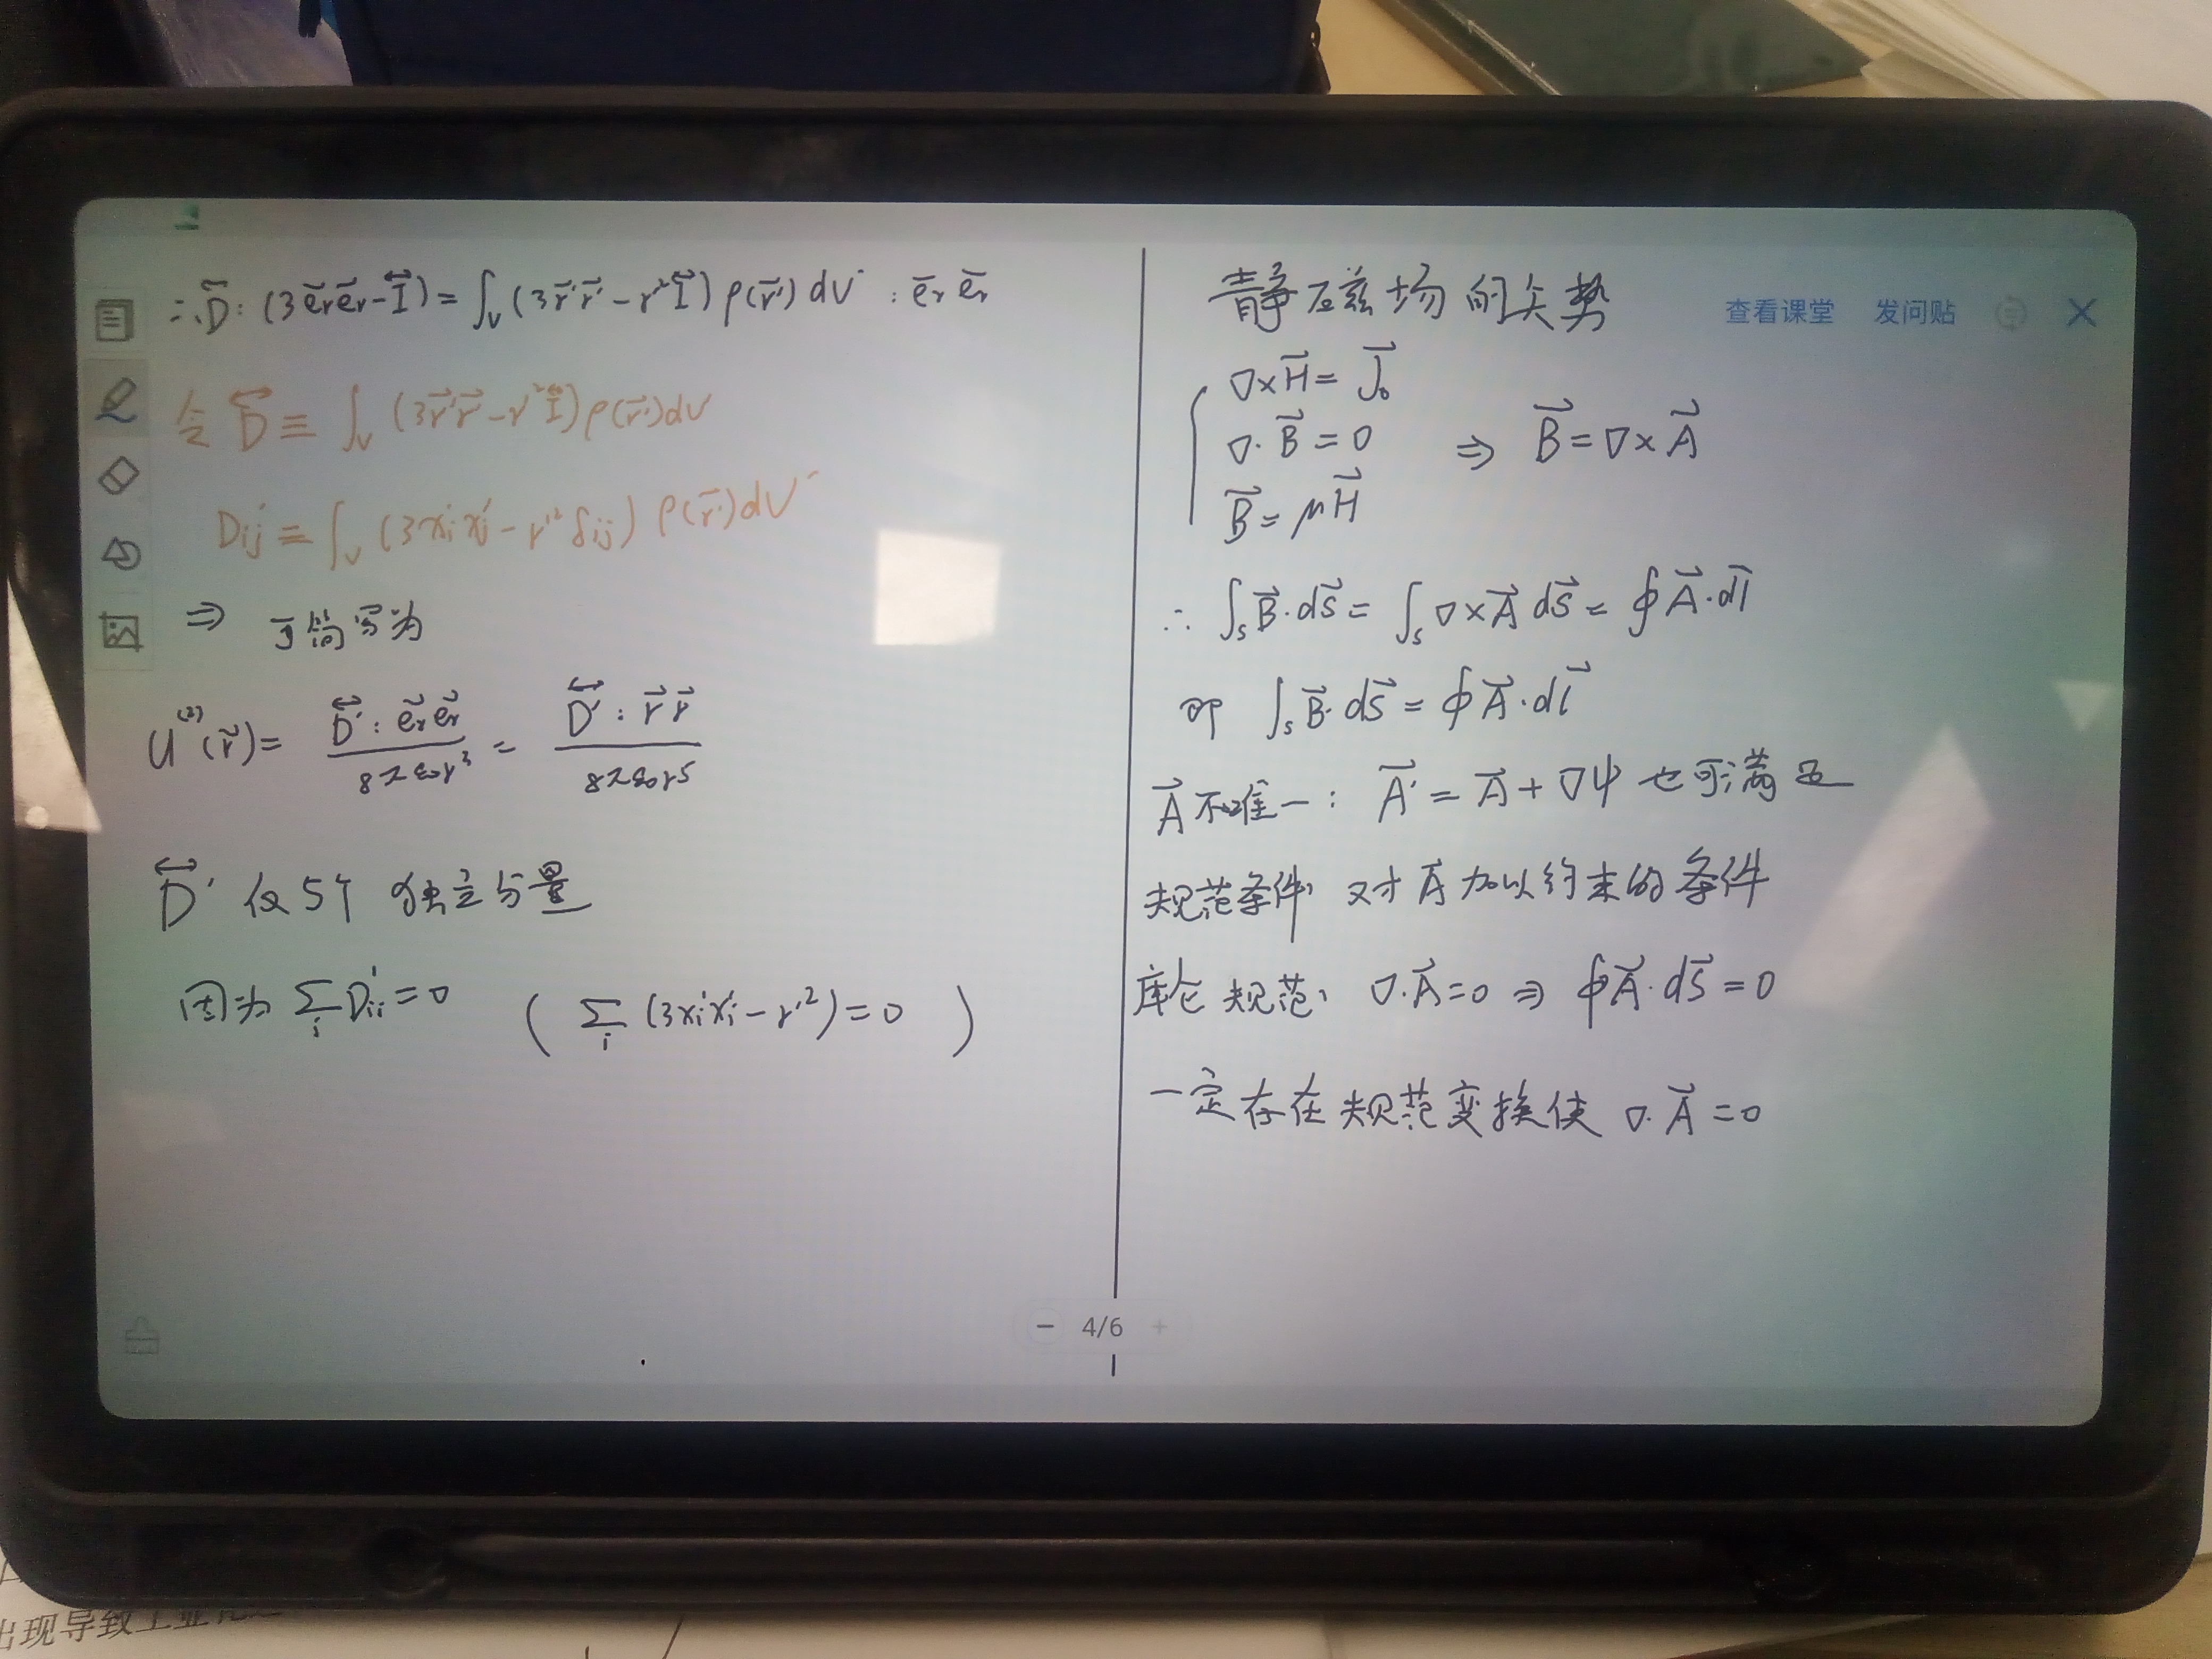 ∴ D⃡ : (3e⃗ᵣe⃗ᵣ - I⃡) = ∫ᵥ (3r⃗'r⃗' - r'²I⃡) ρ(r⃗') dV' : e⃗ᵣ e⃗ᵣ
令 D⃡' ≡ ∫ᵥ (3r⃗'r⃗' - r'²I⃡) ρ(r⃗') dV'
D'ij ≡ ∫ᵥ (3x'ᵢx'ⱼ - r'² δij) ρ(r⃗') dV'
⇒ 可简写为
U⁽²⁾(r⃗) = D⃡' : e⃗ᵣe⃗ᵣ / 8πε₀r³ = D⃡' : r⃗r⃗ / 8πε₀r⁵
D⃡' 仅5个 独立分量
因为 ∑ᵢ D'ᵢᵢ = 0 ( ∑ᵢ (3x'ᵢx'ᵢ - r'²) = 0 )
4/6
静磁场的矢势
查看课堂 发问贴
∇×H⃗ = J⃗₀
∇·B⃗ = 0 ⇒ B⃗ = ∇×A⃗
B⃗ = μH⃗
∴ ∫ₛ B⃗·dS⃗ = ∫ₛ ∇×A⃗ dS⃗ = ∮ A⃗·dl⃗
即 ∫ₛ B⃗·dS⃗ = ∮ A⃗·dl⃗
A⃗ 不唯一: A⃗' = A⃗ + ∇ψ 也可满足
规范条件: 对 A⃗ 加以约束的条件
库仑规范: ∇·A⃗ = 0 ⇒ ∮ A⃗·dS⃗ = 0
一定存在规范变换使 ∇·A⃗ = 0
出现导致工业